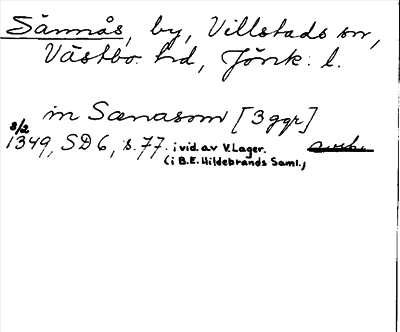 Sännås, by, Villstads sn,
Västbo hd, Jönk. l.
in Sænasom [3 ggr]
8/2
1349, SD 6, s. 77. i vid. av V. Lager.
(i B.E. Hildebrands Saml.)